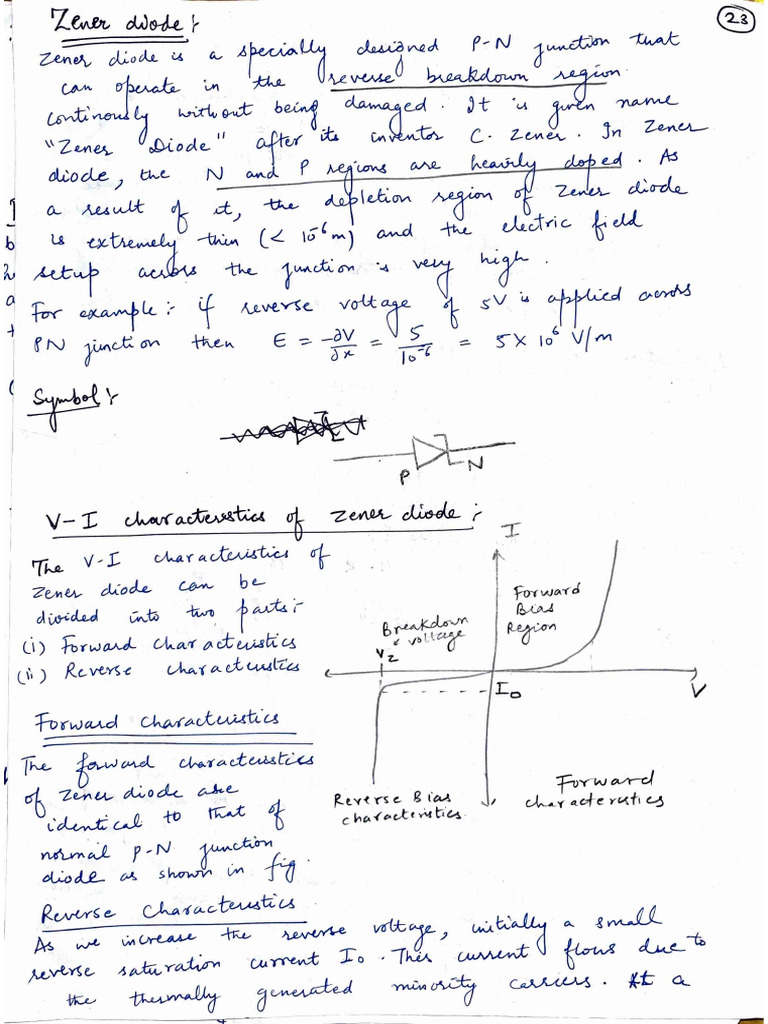 23
Zener diode :-
Zener diode is a specially designed P-N junction that
can operate in the reverse breakdown region
continously without being damaged. It is given name
"Zener Diode" after its inventor C. Zener. In Zener
diode, the N and P regions are heavily doped. As
a result of it, the depletion region of Zener diode
is extremely thin (< 10⁻⁶m) and the electric field
setup across the junction is very high.
For example :- if reverse voltage of 5V is applied across
PN junction then E = -∂V/∂x = 5/10⁻⁶ = 5 X 10⁶ V/m
Symbol :-
P N
V-I characteristics of Zener diode :-
The V-I characteristics of
Zener diode can be
divided into two parts :-
(i) Forward characteristics
(ii) Reverse characteristics
I
Forward
Bias
Region
Breakdown
voltage
Vz
I₀
V
Reverse Bias
characteristics
Forward
characteristics
Forward characteristics
The forward characteristics
of Zener diode are
identical to that of
normal P-N junction
diode as shown in fig.
Reverse Characteristics
As we increase the reverse voltage, initially a small
reverse saturation current I₀. This current flows due to
the thermally generated minority carriers. At a